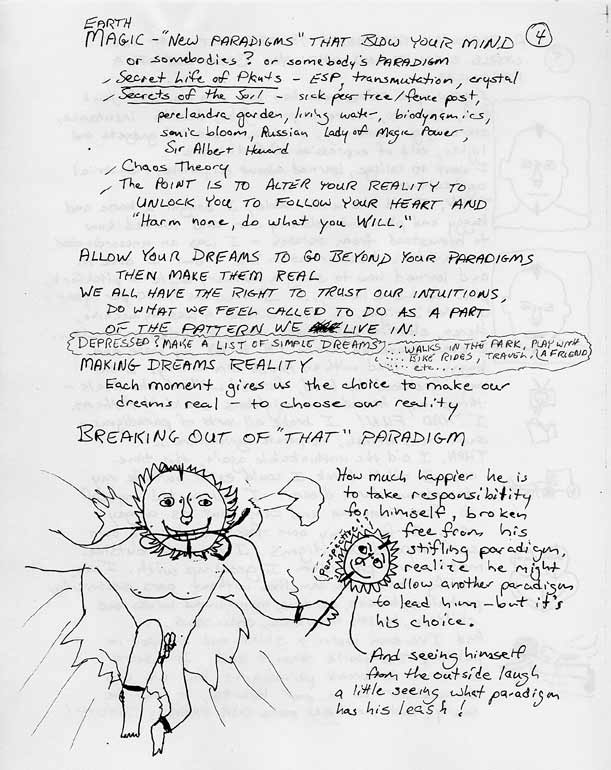 EARTH
MAGIC - "NEW PARADIGMS" THAT BLOW YOUR MIND
4
or somebodies? or somebody's PARADIGM
Secret Life of Plants - ESP, transmutation, crystal
Secrets of the Soil - sick pear tree/fence post,
perelandra garden, living water, biodynamics,
sonic bloom, Russian Lady of Magic Power,
Sir Albert Howard
Chaos Theory
The POINT IS TO ALTER YOUR REALITY TO
UNLOCK YOU TO FOLLOW YOUR HEART AND
"Harm none, do what you WILL."
ALLOW YOUR DREAMS TO GO BEYOND YOUR PARADIGMS
THEN MAKE THEM REAL
WE ALL HAVE THE RIGHT TO TRUST OUR INTUITIONS,
DO WHAT WE FEEL CALLED TO DO AS A PART
OF THE PATTERN WE LIVE IN.
DEPRESSED? MAKE A LIST OF SIMPLE DREAMS
... WALKS IN THE PARK, PLAY WITH
... BIKE RIDES, TRAVEL, A FRIEND
etc....
MAKING DREAMS REALITY
Each moment gives us the choice to make our
dreams real - to choose our reality
BREAKING OUT OF "THAT" PARADIGM
How much happier he is
to take responsibility
for himself, broken
free from his
stifling paradigm,
realize he might
allow another paradigm
to lead him - but it's
his choice.
Perspective!
And seeing himself
from the outside laugh
a little seeing what paradigm
has his leash!